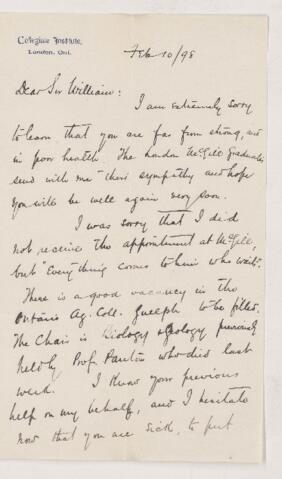 Collegiate Institute,
London, Ont.
Feb 10/98
Dear Sir William:
I am extremely sorry
to learn that you are far from strong, and
in poor health. The London McGill Graduates
send with me their sympathy and hope
you will be well again very soon.
I was sorry that I did
not receive the appointment at McGill,
but "Everything comes to him who waits".
There is a good vacancy in the
Ontario Ag. Coll. Guelph to be filled.
The Chair is Biology & Geology previously
held by Prof. Panton who died last
week. I know your previous
help on my behalf, and I hesitate
now that you are sick, to put